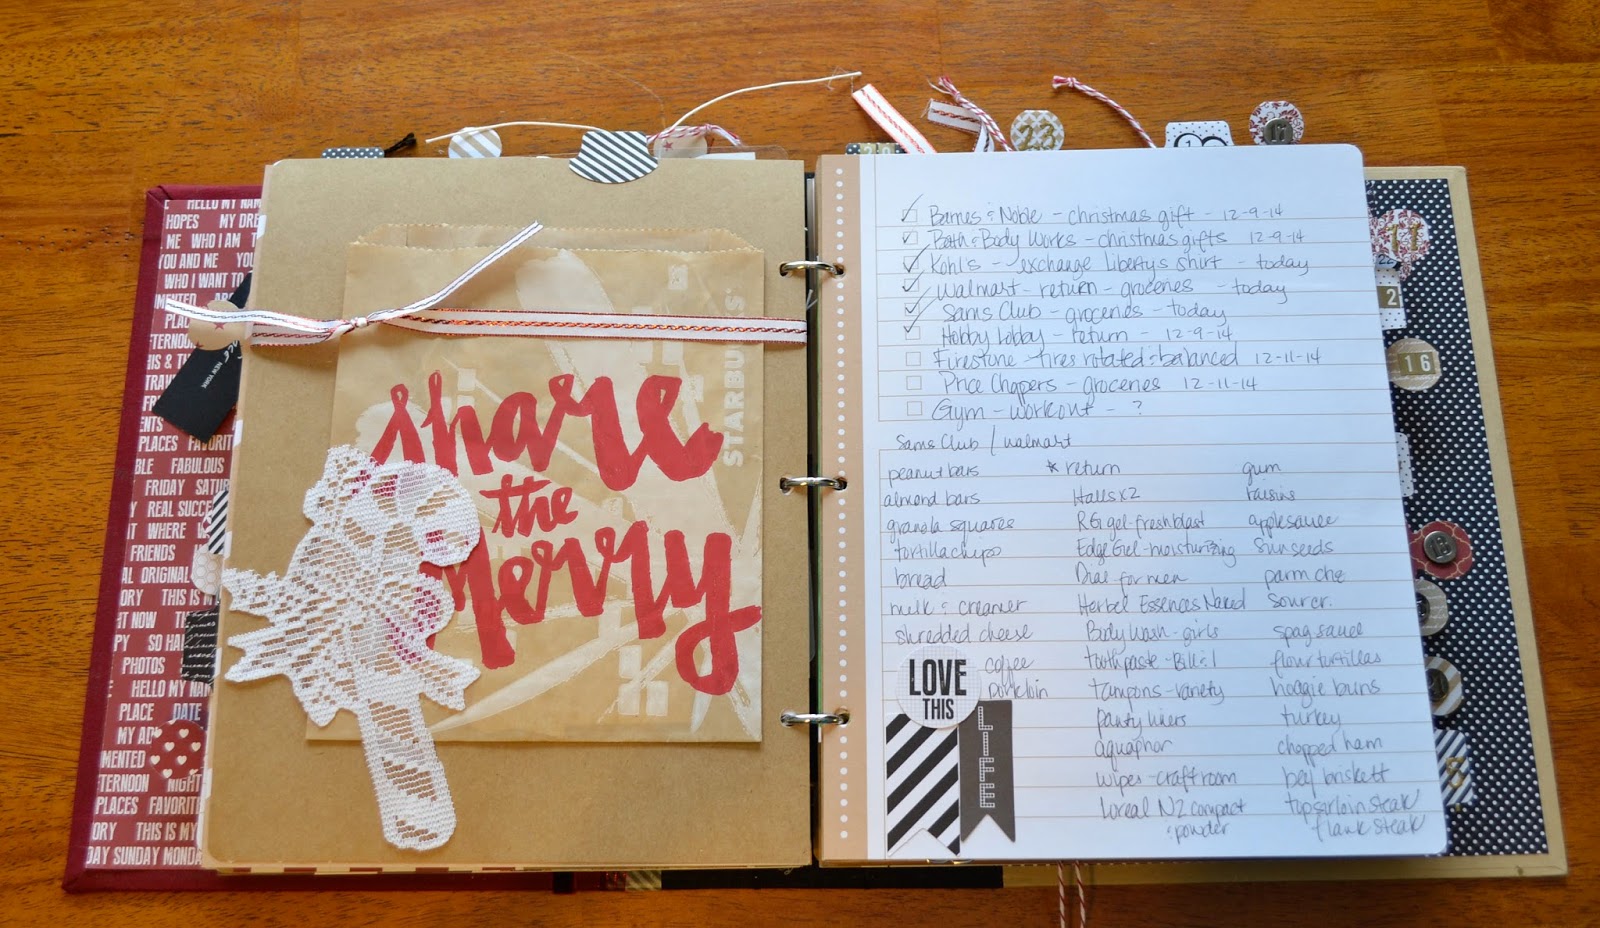 HELLO MY NAM
HOPES MY DRE
ME WHO I AM
YOU AND ME YOU
WHO I WANT TO
MENTED
PLAC
TERNOON
HIS & TH
TRAV
ENTS
PLACES FAVORIT
BLE FABULOUS
FRIDAY SATU
MY REAL SUCCE
WHERE
FRIENDS
AL ORIGINAL
ORY THIS IS M
HT NOW TH
PY SO HA
PHOTOS
HELLO MY NAM
PLACE DATE
MY AD
MENTED
TERNOON NIGHT
PLACES FAVORITE
ORY THIS IS MY
DAY SUNDAY MONDA
NEW YORK
STARBUCKS
share
the
merry
23
17
Barnes & Noble - christmas gift - 12-9-14
Bath & Body Works - christmas gifts 12-9-14
Kohl's - exchange liberty's shirt - today
Walmart - return - groceries - today
Sams Club - groceries - today
Hobby Lobby - return - 12-9-14
Firestone - tires rotated & balanced 12-11-14
Price Choppers - groceries 12-11-14
Gym - workout - ?
Sams Club / walmart
peanut bars * return gum
almond bars Halls x2 raisins
granola squares RG gel - fresh blast applesauce
tortilla chips Edge Gel - moisturizing sun seeds
bread Dial for men parm che
milk & creamer Herbel Essences Naked sour cr.
shredded cheese Body Wash - girls spag sauce
coffee toothpaste - Bill & I flour tortillas
porkloin tampons - variety hoagie buns
panty liners turkey
aquaphor chopped ham
wipes - craft room beef briskett
Loreal N2 compact top sirloin steak
& powder flank steak
LOVE
THIS
LIFE
11
2
16
13
8